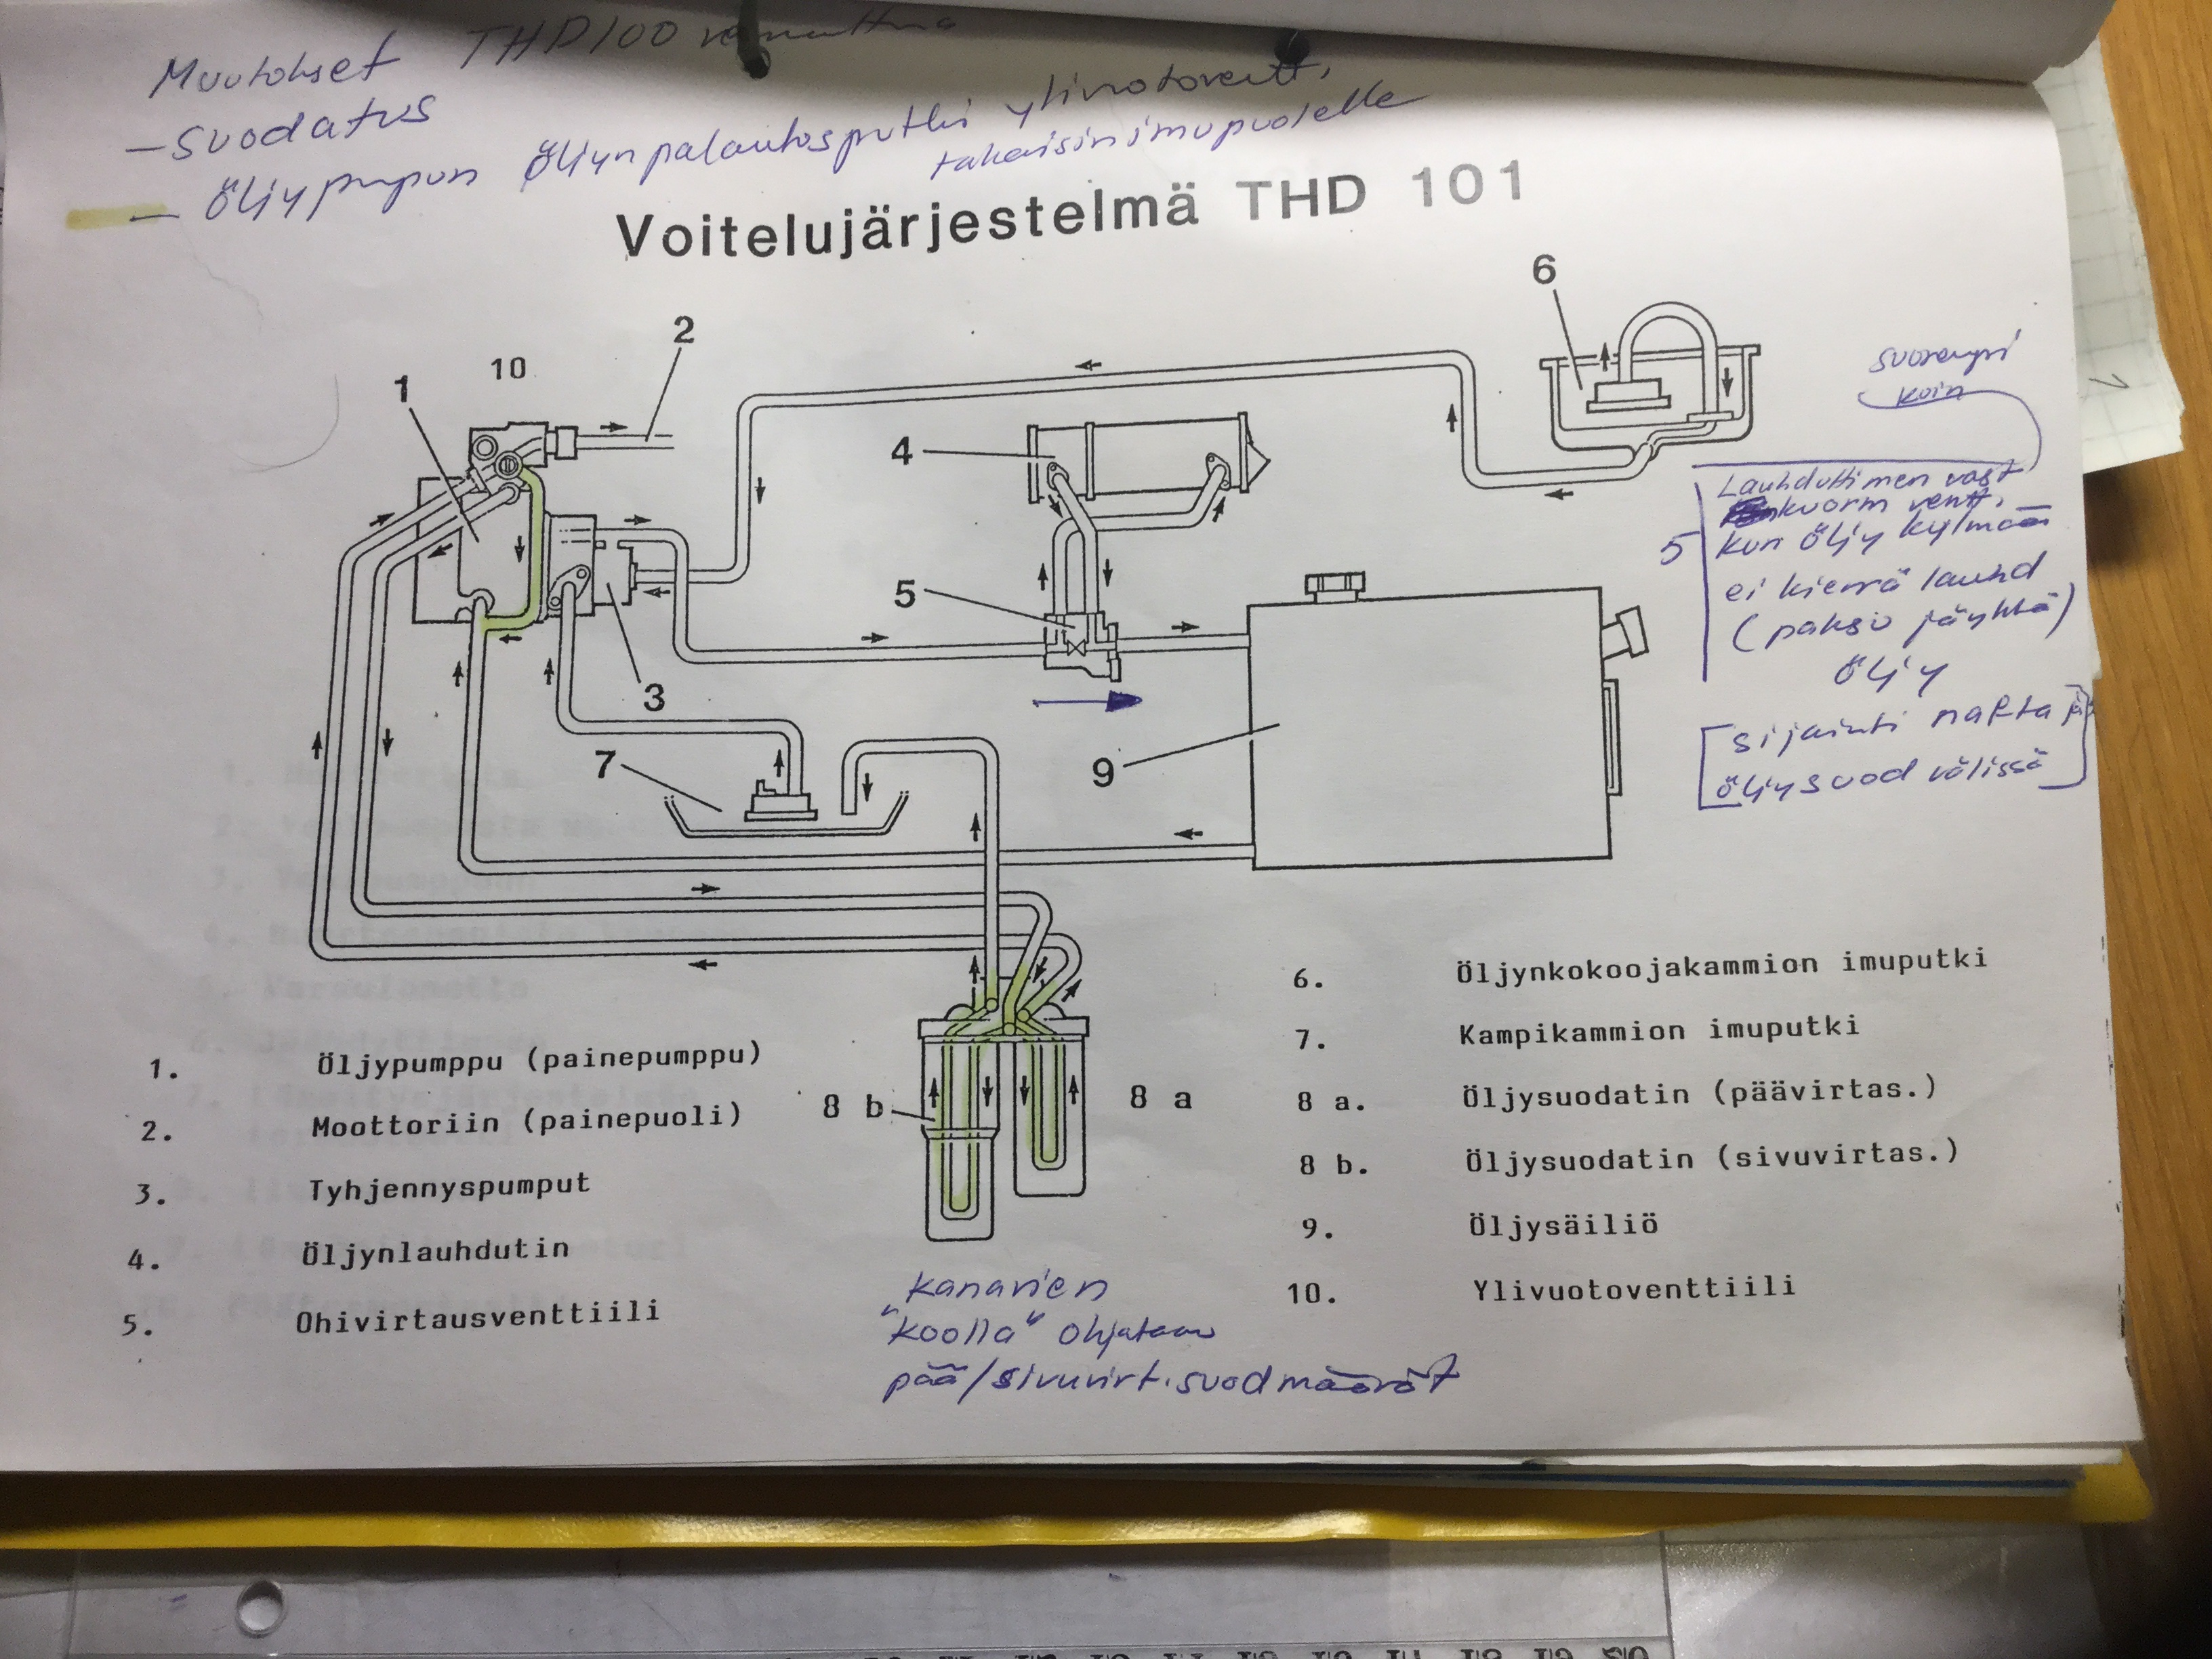 Muutokset THD100
- suodatus
- Öljypumpun Öljynpalautosputki ylivuotovent.
takaisin imupuolelle
Voitelujärjestelmä THD 101
6
2
10
1
4
5
3
7
9
suorempi
koin
Lauhduttimen vast
kuorm ventt.
5 kun öljy kylmää
ei kierrä lauhd
(paksu jäykkä)
öljy
sijainti
öljysuod välissä
8 b
8 a
1. Öljypumppu (painepumppu)
2. Moottoriin (painepuoli)
3. Tyhjennyspumput
4. Öljynlauhdutin
5. Ohivirtausventtiili
6. Öljynkokoojakammion imuputki
7. Kampikammion imuputki
8 a. Öljysuodatin (päävirtas.)
8 b. Öljysuodatin (sivuvirtas.)
9. Öljysäiliö
10. Ylivuotoventtiili
kanavien
"koolla" ohjataan
pää/sivuvirt.suod määrät